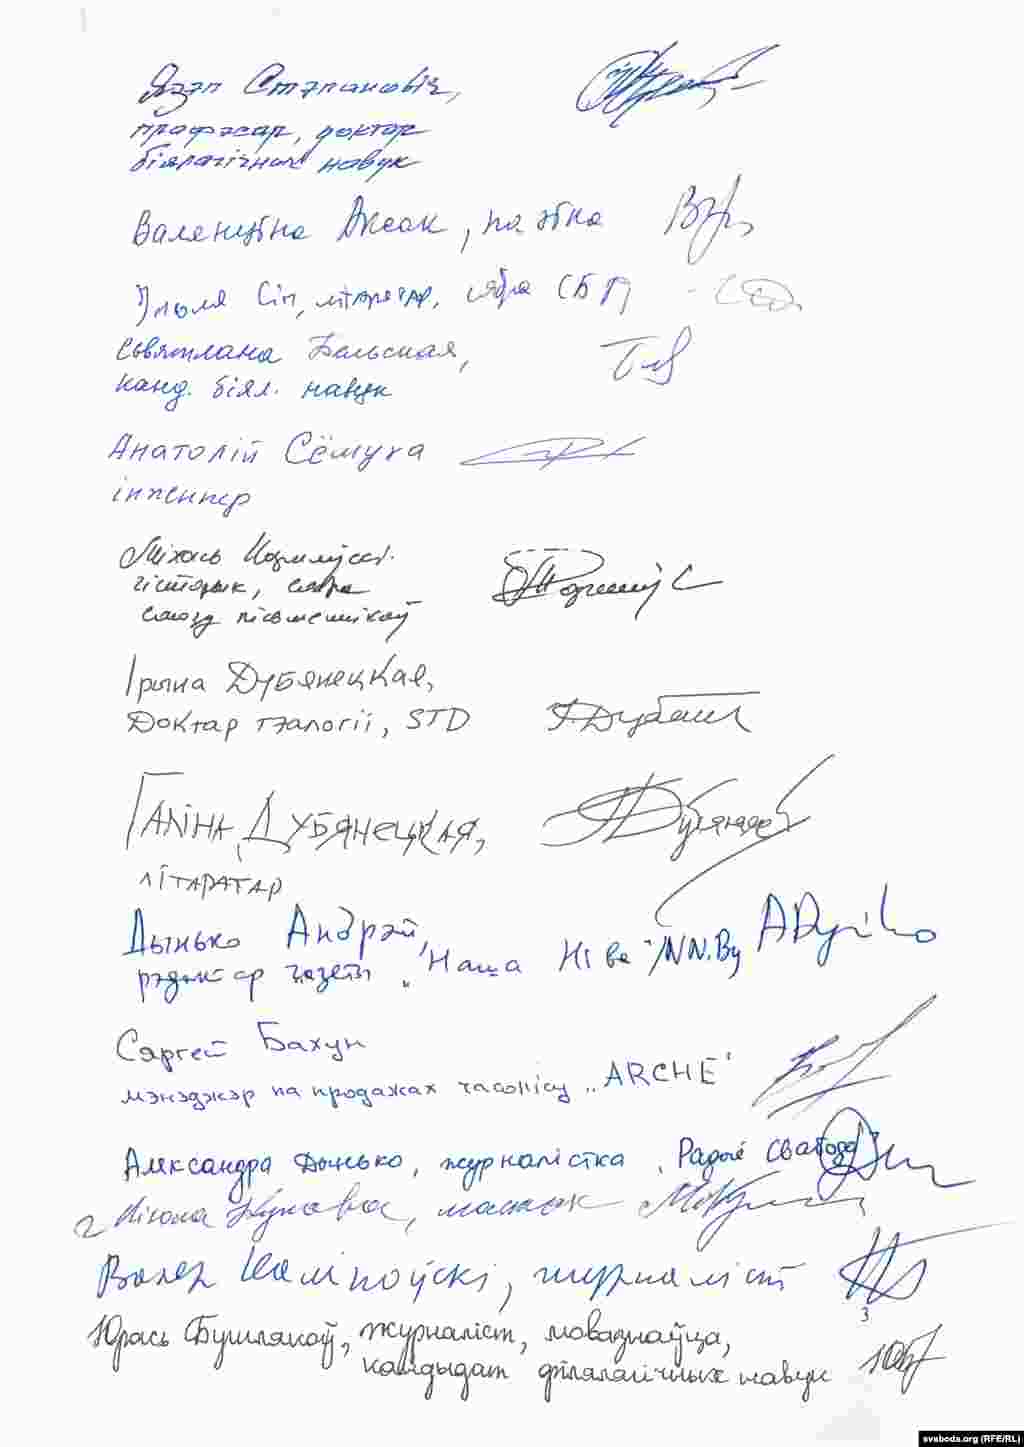 Язэп Стэпановіч,
прафэсар, доктар
біялагічных навук
Валенціна Аксак, паэтка
Юля Сіп, літаратар, сябра СБП
Сьвятлана Бельская,
канд. біял. навук
Анатолій Сёмуха
інжэнер
Міхась
гісторык, сябра
саюзу пісьменнікаў
Ірына Дубянецкая,
Доктар тэалогіі, STD
Галіна Дубянецкая,
літаратар
Дынько Андрэй,
рэдактар газеты „Наша Ніва"/NN.By
Сяргей Бахун
мэнэджэр па продажах часопісу „ARCHE"
Александра Дынько, журналістка „Радыё Свабода"
Мікола Купава, мастак
Валер Каліноўскі, журналіст
3
Юрась Бушлякоў, журналіст, мовазнаўца,
кандыдат філялагічных навук
svaboda.org (RFE/RL)